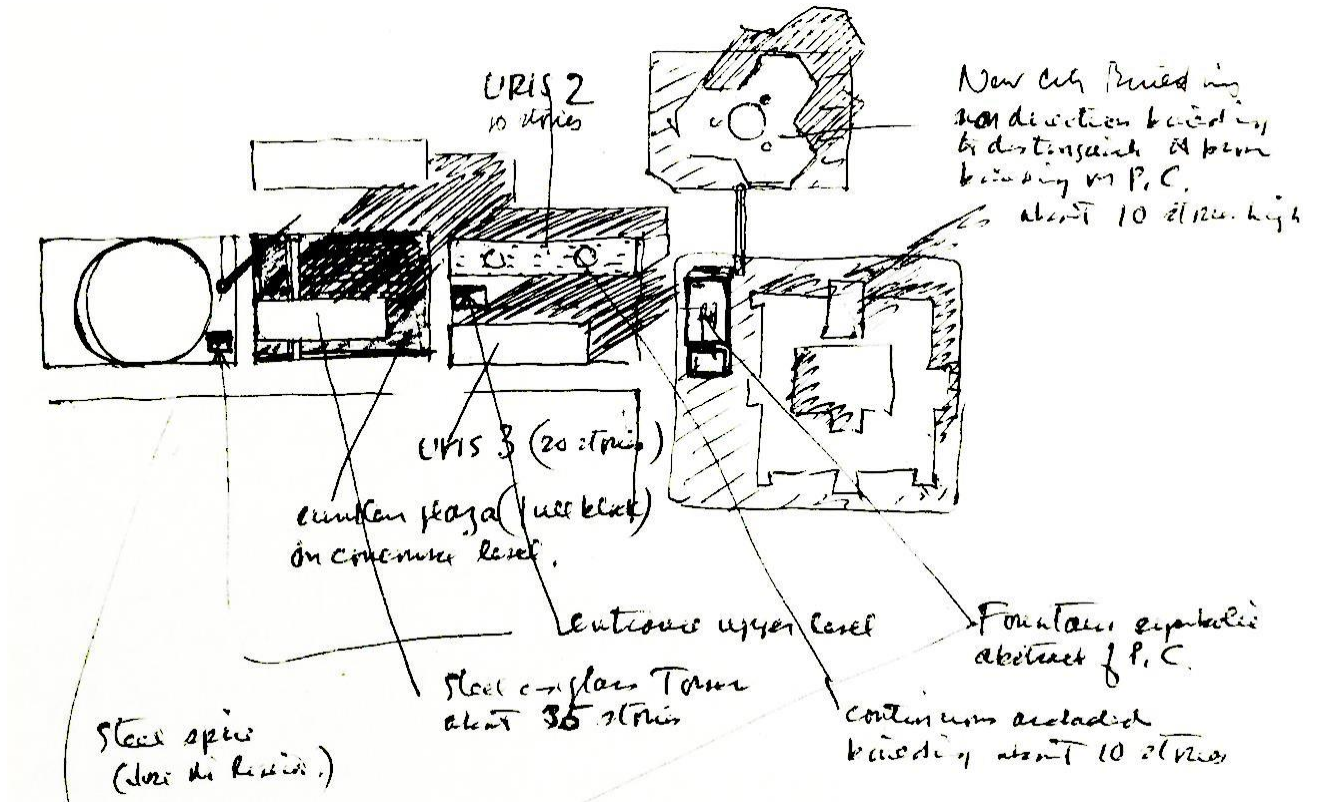 URIS 2
10 stories
New City Building
non direction building
to distinguish it from
building in P.C.
about 10 stories high
URIS 3 (20 stories)
plaza (full block)
on concourse level.
entrance upper level
Fountain symbolic
abstract of P.C.
Steel & glass Tower
about 35 stories
continuous arcaded
building about 10 stories
Steel spire